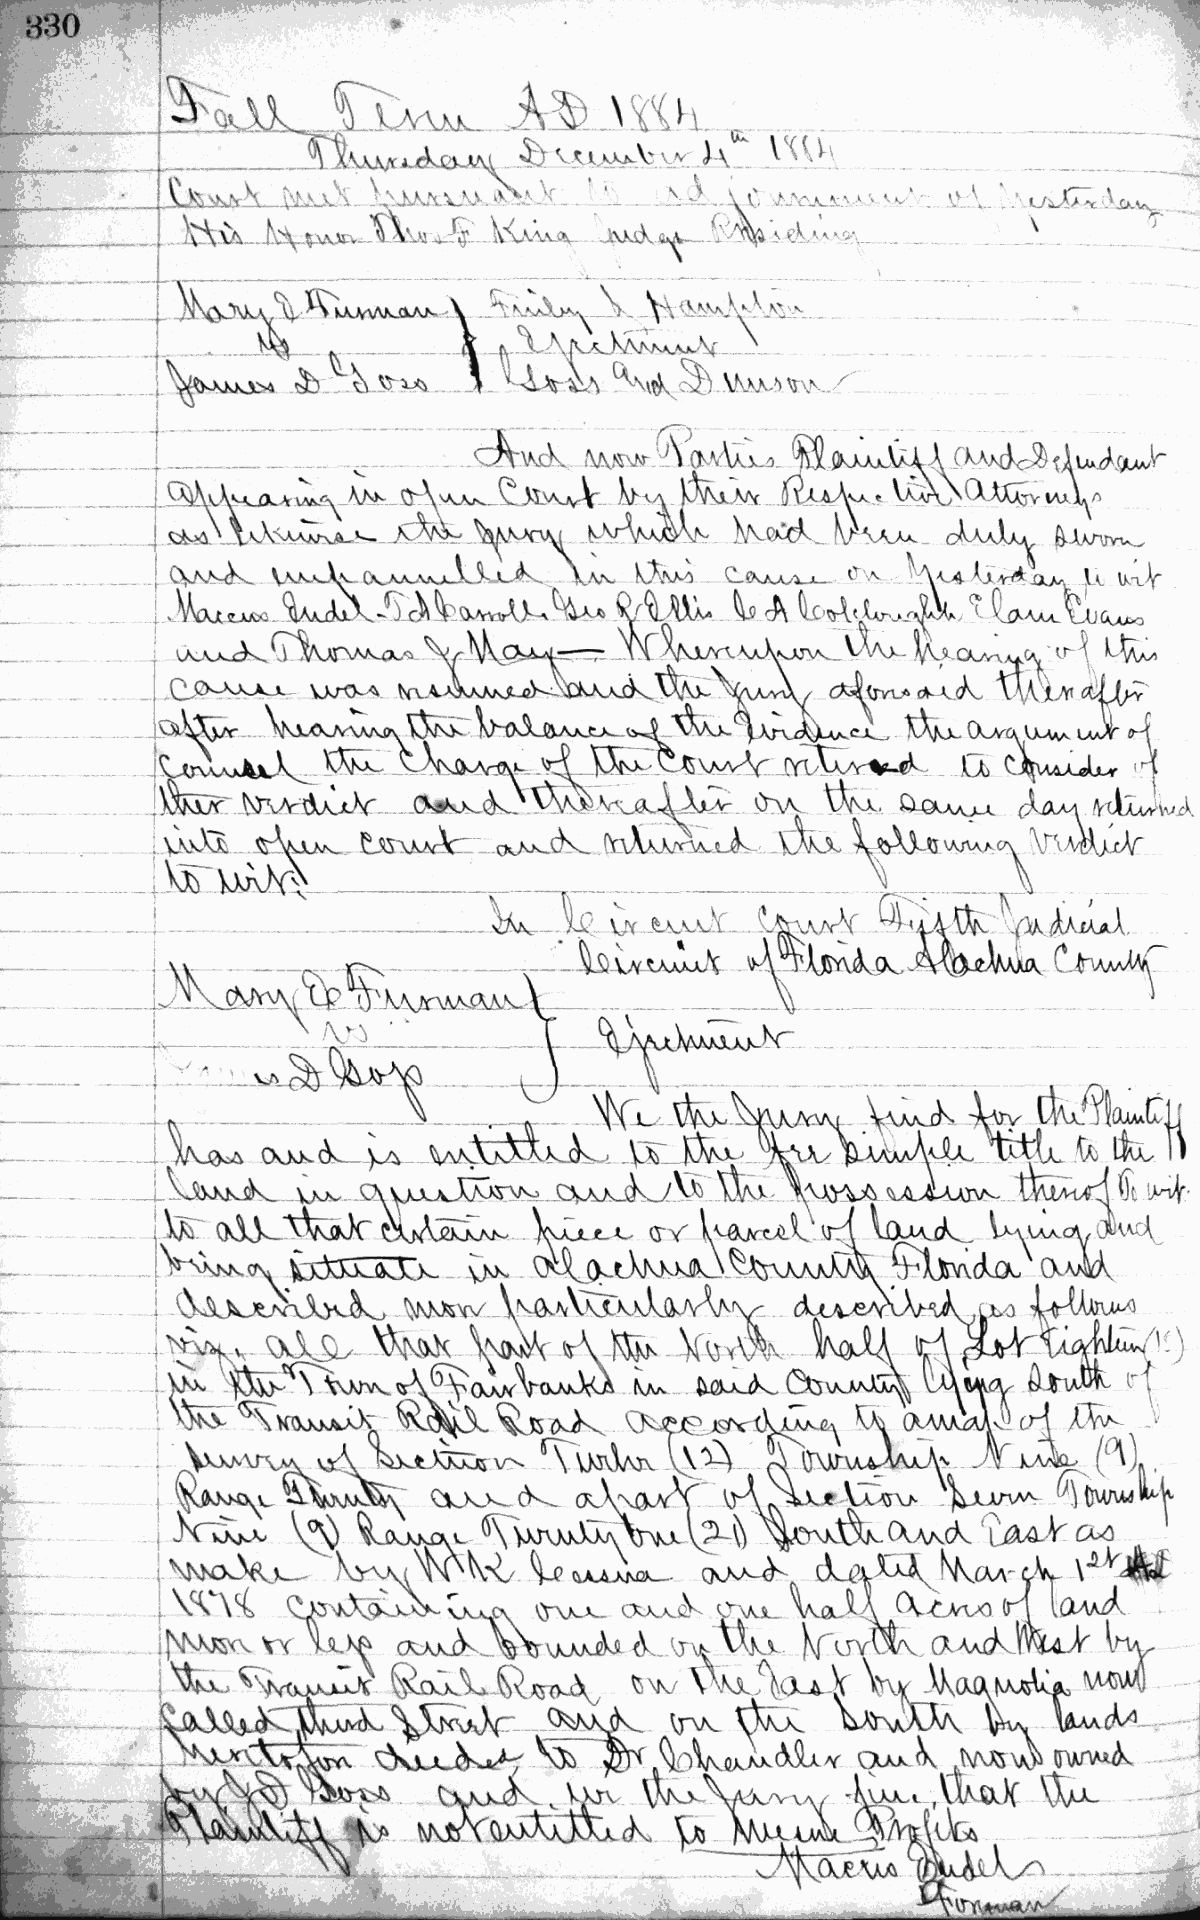 330
Fall Term AD 1884
Thursday December 4th 1884
Court met pursuant to adjournment of yesterday
His Honor Thos F King Judge Presiding
Mary E Furman } Finley & Hampton
vs } Ejectment
James D Goss } Goss and Dunson
And now Parties Plaintiff and Defendant
appearing in open Court by their Respective Attorneys
as likewise the Jury which had been duly sworn
and empannelled in this cause on Yesterday to wit
Marcus Endel - T A Carroll, Geo R Ellis C A Colclough Elam Evans
and Thomas J May — Whereupon the hearing of this
cause was resumed and the Jury aforesaid thereafter
after hearing the balance of the Evidence the argument of
counsel the Charge of the Court retired to consider of
ther verdict and thereafter on the same day returned
into open court and returned the following Verdict
to wit:
In Circuit Court Fifth Judicial
Circuit of Florida Alachua County
Mary E Furman }
vs } Ejectment
James D Goss
We the Jury find for the Plaintiff
has and is entitled to the fee simple title to the
land in question and to the possession thereof To wit.
to all that certain piece or parcel of land lying and
being situate in Alachua County Florida and
described more particularly described as follows
viz. all that part of the North half of Lot Eighteen (18)
in the Town of Fairbanks in said County lying South of
the Transit Rail Road according to a map of the
survey of Section Twelve (12) Township Nine (9)
Range Twenty and a part of Section Seven Township
Nine (9) Range Twenty One (21) South and East as
make by W K Cessna and dated March 1st
1878 containing one and one half acres of land
more or less and bounded on the North and West by
the Transit Rail Road on the East by Magnolia now
called third Street and on the South by lands
heretofore deeded to Dr Chandler and now owned
by J D Goss and we the Jury find that the
Plaintiff is not entitled to Mesne Profits
Marcus Endel
Forman